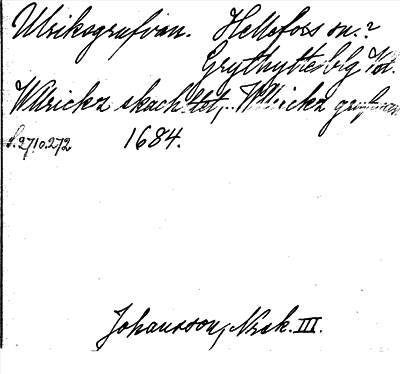 Ulrikagrufvan. Hellefors sn.?
Grythytte blg Vstm.
Wllrickz skachtet, Wllrickz grufwan
S. 271 o. 272 1684.
Johansson, Nask. III.